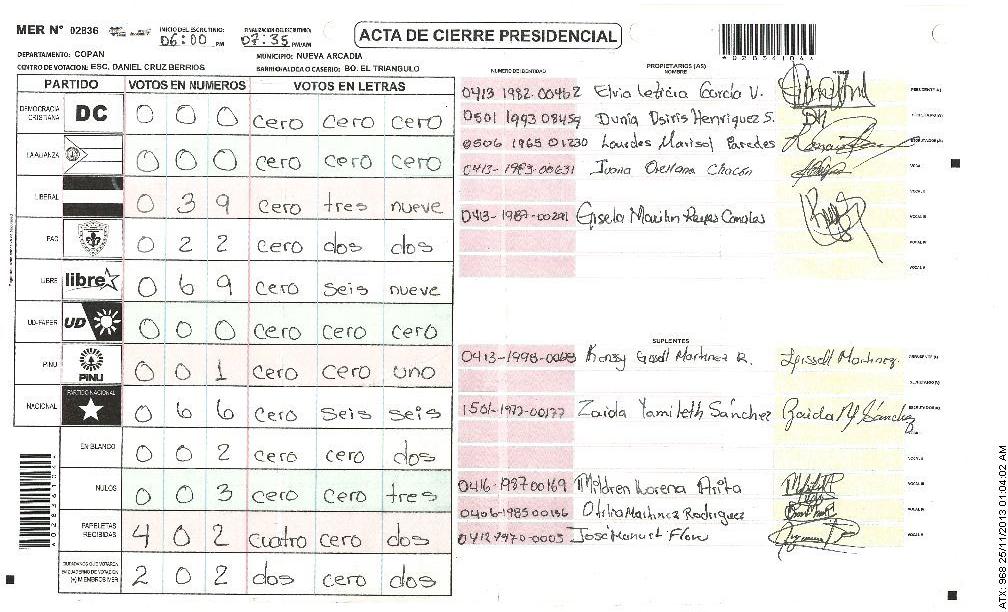 MER N° 02836 INICIO DEL ESCRUTINIO: 06:00 PM FINALIZACION DEL ESCRUTINIO: 07:35 PM/AM
ACTA DE CIERRE PRESIDENCIAL
DEPARTAMENTO: COPAN MUNICIPIO: NUEVA ARCADIA
CENTRO DE VOTACION: ESC. DANIEL CRUZ BERRIOS BARRIO/ALDEA O CASERIO: BO. EL TRIANGULO
PARTIDO VOTOS EN NUMEROS VOTOS EN LETRAS
DEMOCRACIA CRISTIANA DC 0 0 0 cero cero cero
LA ALIANZA 0 0 0 cero cero cero
LIBERAL 0 3 9 cero tres nueve
PAC 0 2 2 cero dos dos
LIBRE libre 0 6 9 cero seis nueve
UD-FAPER UD 0 0 0 cero cero cero
PINU PINU 0 0 1 cero cero uno
NACIONAL PARTIDO NACIONAL 0 6 6 cero seis seis
EN BLANCO 0 0 2 cero cero dos
NULOS 0 0 3 cero cero tres
PAPELETAS RECIBIDAS 4 0 2 cuatro cero dos
CIUDADANOS QUE VOTARON EN CUADERNO DE VOTACION (+) MIEMBROS MER 2 0 2 dos cero dos
NUMERO DE IDENTIDAD PROPIETARIOS (AS) NOMBRE
0413 1982-00462 Elvia Leticia García V.
0501 1993 08459 Dunia Osiris Henriquez S.
0506 1965 01230 Lourdes Marisol Paredes
0413-1983-00631 Juana Orellana Chacón
0413-1987-00291 Gisela Marilin Reyes
SUPLENTES
0413-1998- Martinez R.
1501-1977-00177 Zaida Yamileth Sánchez Zaida Y Sánchez
0416-1987 00169 Mildren Lorena Arita
0406-1985 00136 Martinez Rodriguez
0412-1970-0005 José Manuel
ATX: 968 25/11/2013 01:04:02 AM